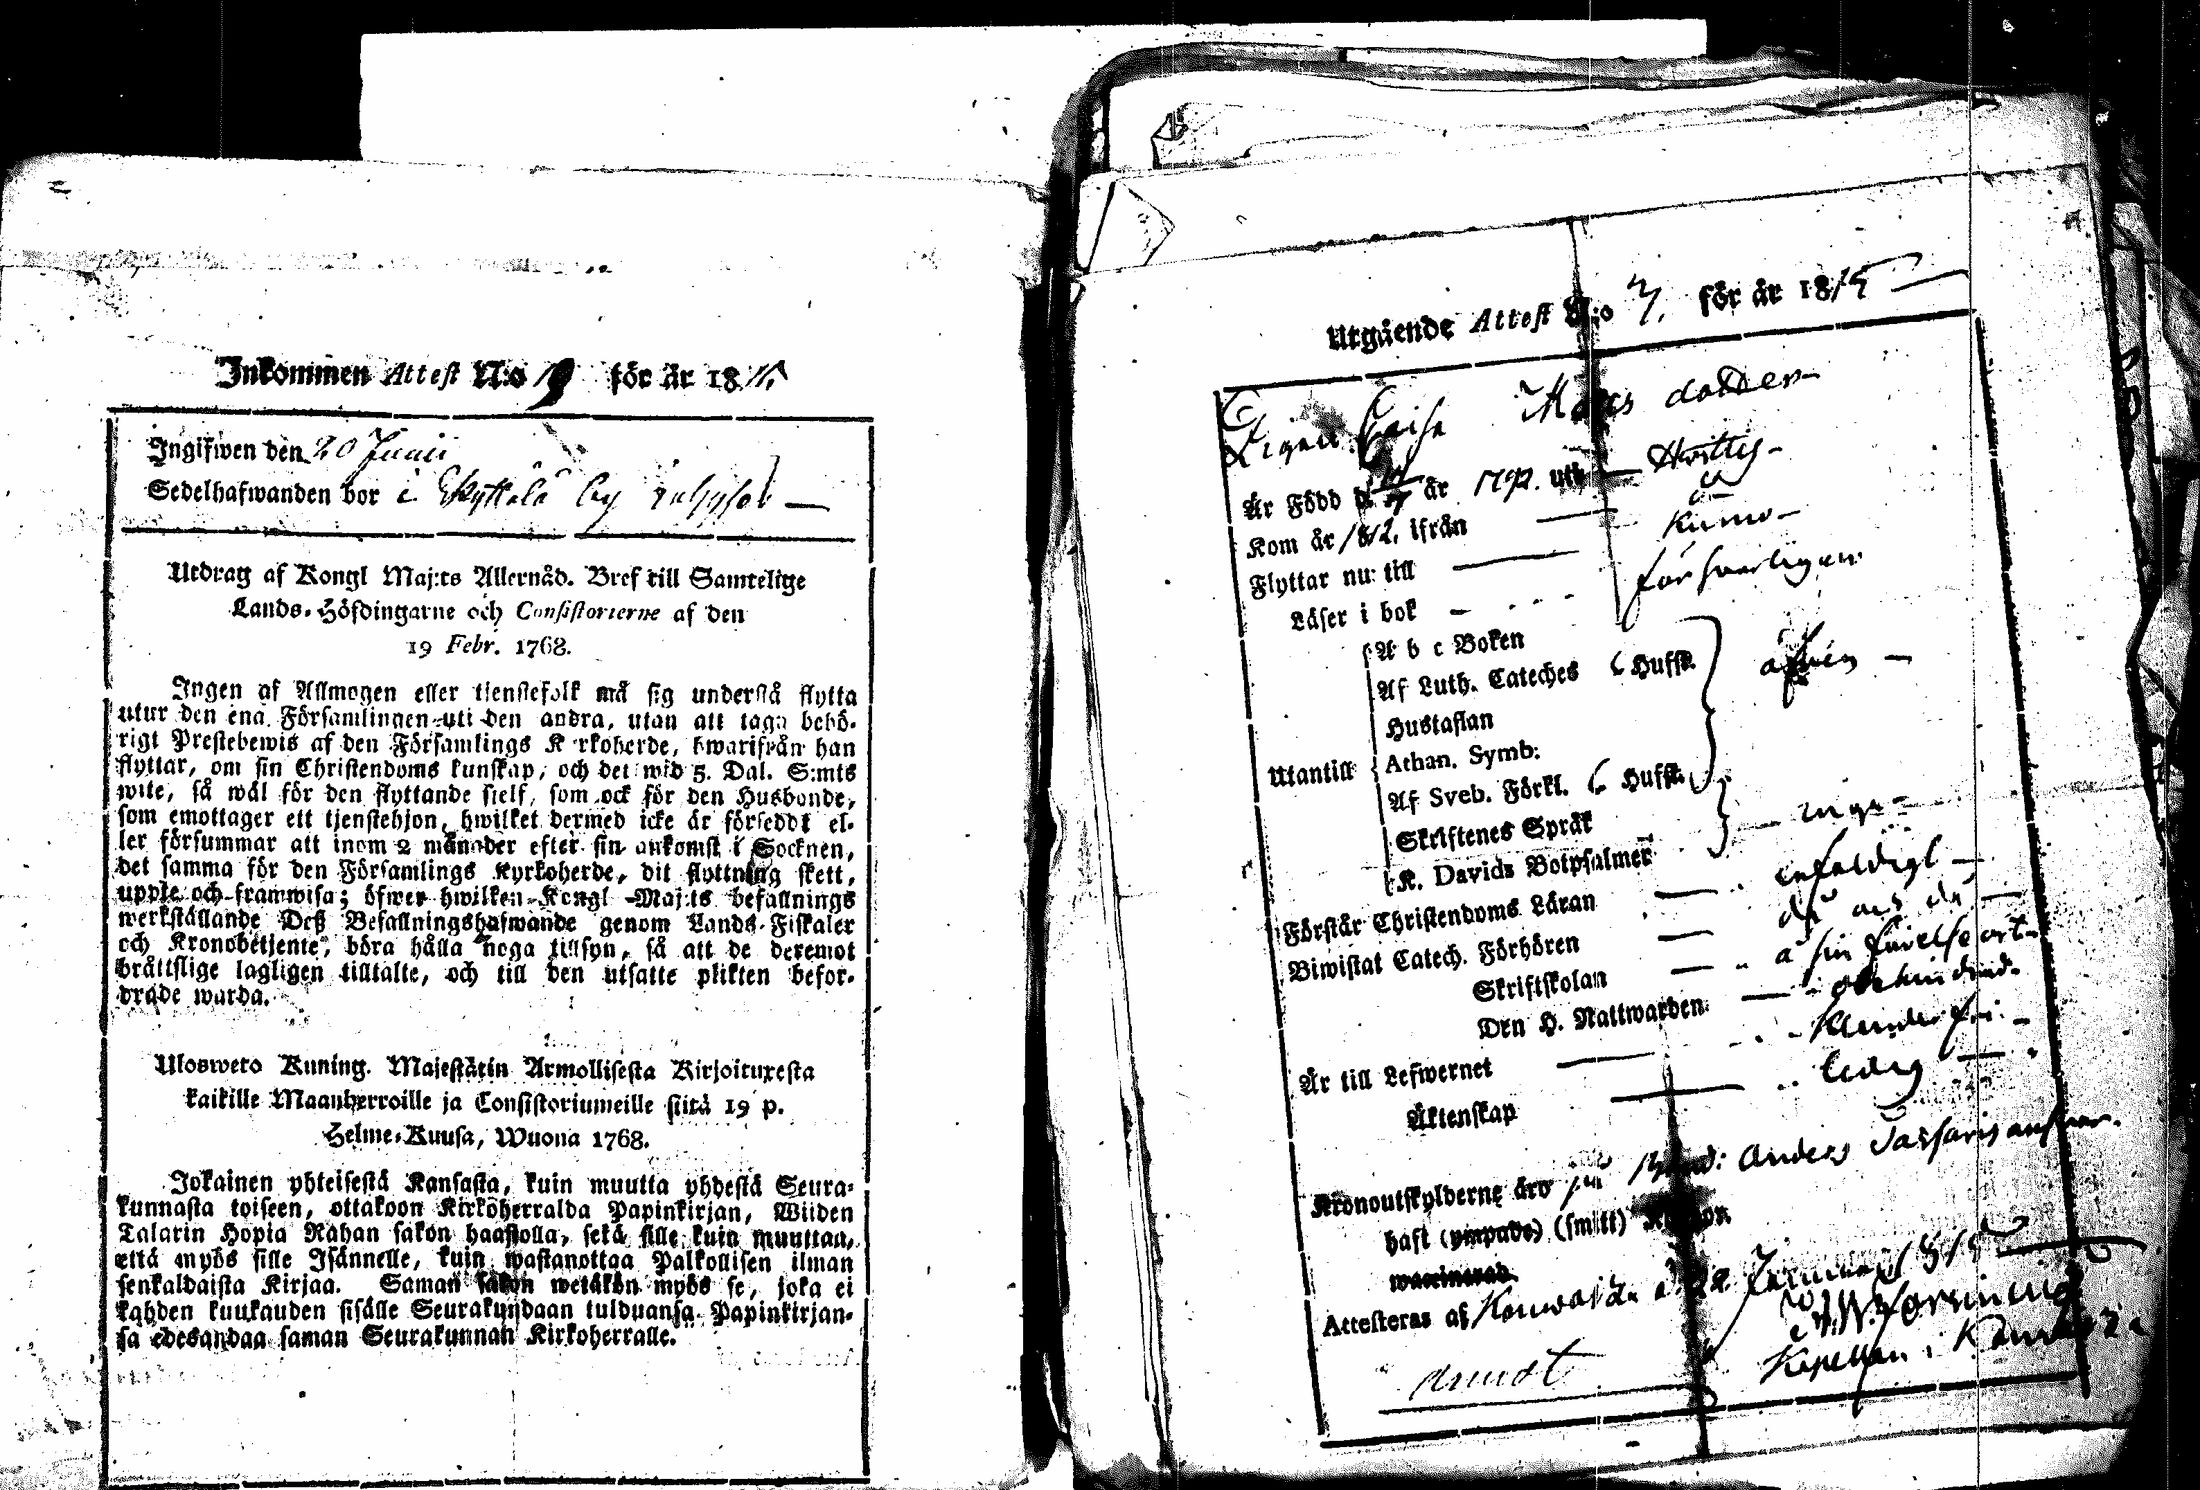 Inkommen Attest N:o 19 för år 1815.
Ingifwen den 20 Junii
Sedelhafwanden bor i Skyttälä by
Utdrag af Kongl Maj:ts Allernåd. Bref till Samtelige
Lands-Höfdingarne och Consistorierne af den
19 Febr. 1768.
Ingen af Allmogen eller tienstefolk må sig understå flytta
utur den ena Församlingen uti den andra, utan att taga behö-
rigt Prestebewis af den Församlings K rkoherde, hwarifrån han
flyttar, om sin Christendoms kunskap, och det wid 5. Dal. S:mts
wite, så wäl för den flyttande sielf, som ock för den Husbonde,
som emottager ett tjenstehjon, hwilket dermed icke är förseddt el-
ler försummar att inom 2 månader efter sin ankomst i Socknen,
det samma för den Församlings Kyrkoherde, dit flyttning skett,
uppte och framwisa; öfwer hwilken Kongl Maj:ts befallnings
werkställande Deß Befallningshafwande genom Lands-Fiskaler
och Kronobetjente, böra hålla noga tillsyn, så att de deremot
bråttslige lagligen tilltalte, och till den utsatte plikten befor-
drade warda.
Ulosweto Kuning. Majestätin Armollisesta Kirjoituxesta
kaikille Maanherroille ja Consistoriumeille siitä 19 p.
Helme-Kuusa, Wuona 1768.
Jokainen yhteisestä Kansasta, kuin muutta yhdestä Seura-
kunnasta toiseen, ottakoon Kirkoherralda Papinkirjan, Wiiden
Talarin Hopia Rahan sakon haastolla, sekä sille kuin muuttaa,
että myös sille Isännelle, kuin wastanottaa Palkollisen ilman
senkaldaista Kirjaa. Saman sakon wetäkön myös se, joka ei
kahden kuukauden sisälle Seurakundaan tulduansa Papinkirjan-
sa edesandaa saman Seurakunnan Kirkoherralle.
Utgående Attest N:o 7. för år 1815
Pigan Caisa Mats dotter
Är Född d år 1792. uti Hvittis
Kom år 1812. ifrån
Flyttar nu till Kumo
Läser i bok försvarligen
A b c Boken
Af Luth. Cateches Hufst.
Hustaflan
Athan. Symb:
Af Sveb. Förkl. Hufst.
Utantill
äfven
Skriftenes Språk
K. Davids Botpsalmer
inga
Förstår Christendoms Läran enfaldigt
Biwistat Catech. Förhören då och då
Skriftskolan å sin födelse ort
Den H. Nattwarden obehindrad
Är till Lefwernet klanderfri
Äktenskap ledig
Kronoutskylderne äro på Bond: Anders ansvar.
haft (ympade) (smitt) Koppor
waccinerad
Attesteras af Kauvatsa d. 22 Januarii 1815
Kapellan i Kauvatsa